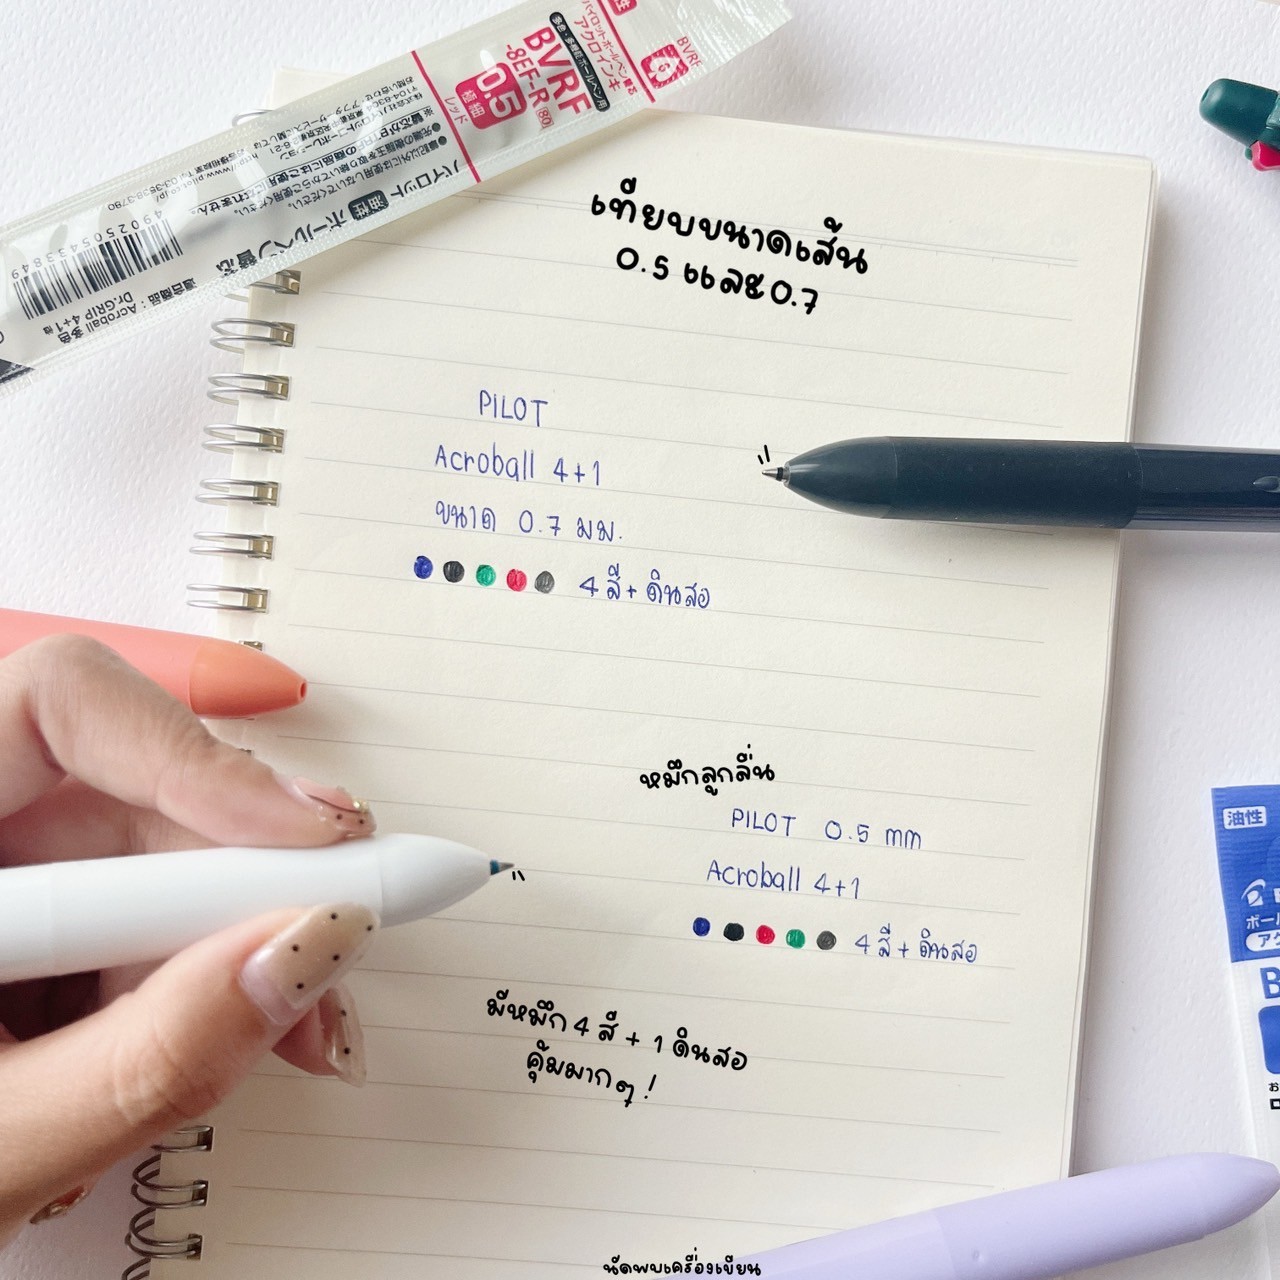 เทียบขนาดเส้น
0.5 และ 0.7
BVRF
-8EF-R
(80)
0.5
極細
レッド
パイロットボールペン替芯
アクロインキ
BVRF
パイロット 油性 ボールペン替芯
4902505433849
適合商品：Acroball 多色
Dr.GRIP 4+1 他
PILOT
Acroball 4+1
ขนาด 0.7 มม.
4 สี + ดินสอ
หมึกลูกลื่น
PILOT 0.5 mm
Acroball 4+1
4 สี + ดินสอ
油性
มีหมึก 4 สี + 1 ดินสอ
คุ้มมากๆ !
นัดพบเครื่องเขียน